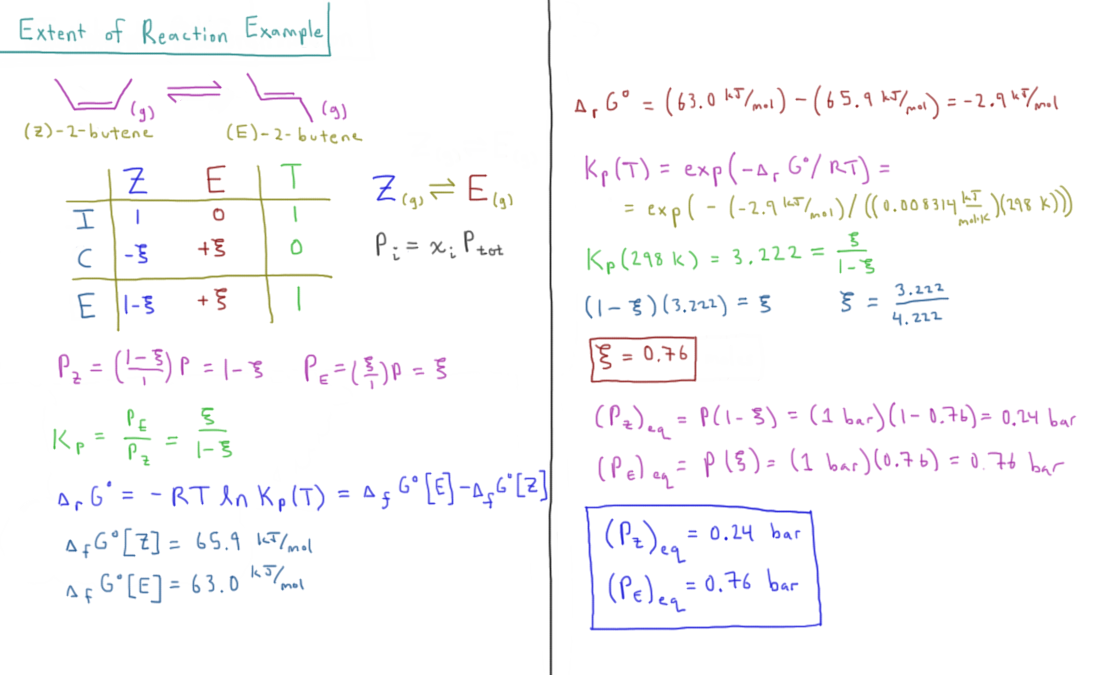 Extent of Reaction Example
(g) ⇌ (g)
(Z)-2-butene (E)-2-butene
Z E T
I 1 0 1
C -ξ +ξ 0
E 1-ξ +ξ 1
Z(g) ⇌ E(g)
P_i = x_i P_tot
P_Z = ((1-ξ)/1) P = 1-ξ P_E = (ξ/1) P = ξ
K_P = P_E/P_Z = ξ/(1-ξ)
Δ_r G° = -RT ln K_P(T) = Δ_f G°[E] - Δ_f G°[Z]
Δ_f G°[Z] = 65.9 kJ/mol
Δ_f G°[E] = 63.0 kJ/mol
Δ_r G° = (63.0 kJ/mol) - (65.9 kJ/mol) = -2.9 kJ/mol
K_P(T) = exp(-Δ_r G°/RT) =
= exp( - (-2.9 kJ/mol) / ((0.008314 kJ/mol·K)(298 K)))
K_P(298 K) = 3.222 = ξ/(1-ξ)
(1-ξ)(3.222) = ξ ξ = 3.222/4.222
ξ = 0.76
(P_Z)_eq = P(1-ξ) = (1 bar)(1-0.76) = 0.24 bar
(P_E)_eq = P(ξ) = (1 bar)(0.76) = 0.76 bar
(P_Z)_eq = 0.24 bar
(P_E)_eq = 0.76 bar